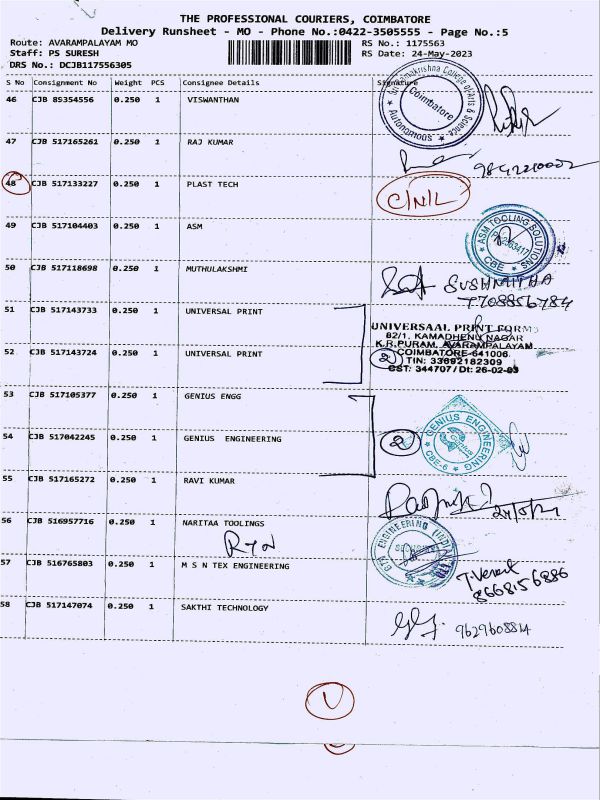 THE PROFESSIONAL COURIERS, COIMBATORE
Delivery Runsheet - MO - Phone No.:0422-3505555 - Page No.:5
Route: AVARAMPALAYAM MO RS No.: 1175563
Staff: PS SURESH RS Date: 24-May-2023
DRS No.: DCJB117556305
S No Consignment No Weight PCS Consignee Details Signature
46 CJB 85354556 0.250 1 VISWANTHAN
Coimbatore
Autonomous
47 CJB 517165261 0.250 1 RAJ KUMAR
48 CJB 517133227 0.250 1 PLAST TECH C/N/L
49 CJB 517104403 0.250 1 ASM
ASM TOOLING SOLUTIONS
CBE
50 CJB 517118698 0.250 1 MUTHULAKSHMI
SUSHMITHA
7708856784
51 CJB 517143733 0.250 1 UNIVERSAL PRINT
UNIVERSAAL PRINT FORMS
82/1, KAMADHENU NAGAR
K.R.PURAM, AVARAMPALAYAM
52 CJB 517143724 0.250 1 UNIVERSAL PRINT
2 COIMBATORE-641006
TIN: 33692182309
CST: 344707/Dt: 26-02-93
53 CJB 517105377 0.250 1 GENIUS ENGG
54 CJB 517042245 0.250 1 GENIUS ENGINEERING 2
GENIUS ENGINEERING
CBE-6
55 CJB 517165272 0.250 1 RAVI KUMAR
56 CJB 516957716 0.250 1 NARITAA TOOLINGS
57 CJB 516765803 0.250 1 M S N TEX ENGINEERING
8668156886
58 CJB 517147074 0.250 1 SAKTHI TECHNOLOGY
9629608814